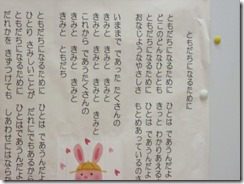 ともだちになるために
ともだちになるために ひとは であうんだよ
どこのどんなひととも きっと わかりあえるさ
ともだちになるために ひとは であうんだよ
おなじようなやさしさ もとめあっているのさ
いままで であった たくさんの
きみと きみと きみと きみと
きみと きみと きみと
これから であう たくさんの
きみと きみと きみと きみと
きみと ともだち
ともだちになるために ひとは であうんだよ
ひとり さみしいことが だれにでもあるから
ともだちになるために ひとは であうんだよ
だれかを きずつけても しあわせにはならな